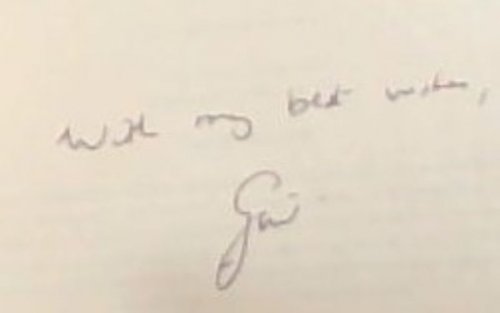 With my best wishes,